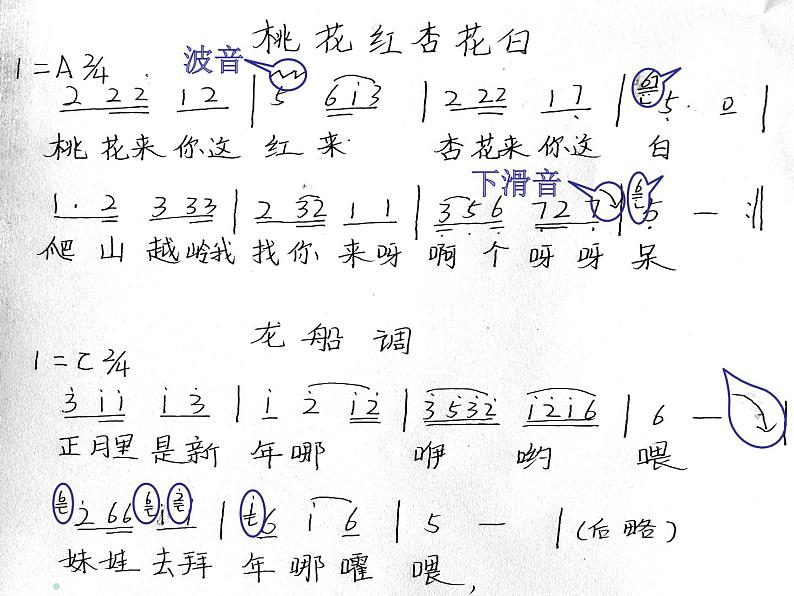 桃花红杏花白
1=A 2/4 波音
2 22 12 | 5 6i3 | 2 22 17 | 5· 0 |
桃花来你这红来 杏花来你这白
下滑音
1· 2 3 33 | 2 32 1 1 | 3 5 6 72 7 | 5 — :||
爬山越岭我找你来呀啊个呀呀呆
龙船调
1=C 2/4
3 ii i 3 | i 2 i2 | 3532 i2i6 | 6 — |
正月里是新年哪咿哟喂
2 66 i i | 6 i 6 | 5 — | (后略)
妹娃去拜年哪嚯喂,